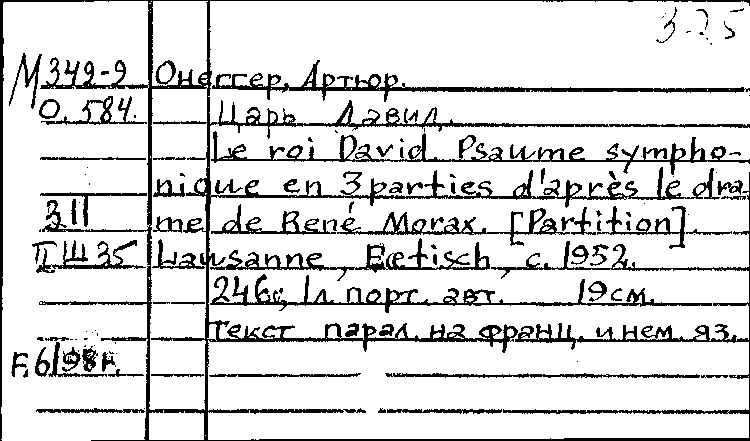 3-25
М 349-9 Онеггер, Артюр.
О. 584. Царь Давид.
Le roi David. Psaume sympho-
nique en 3 parties d'après le dra
3II me de René Morax. [Partition].
II Ш 35 Lausanne, Fœtisch, c. 1952.
246с, 1л. порт. авт. 19см.
Текст парал. на франц. и нем. яз.